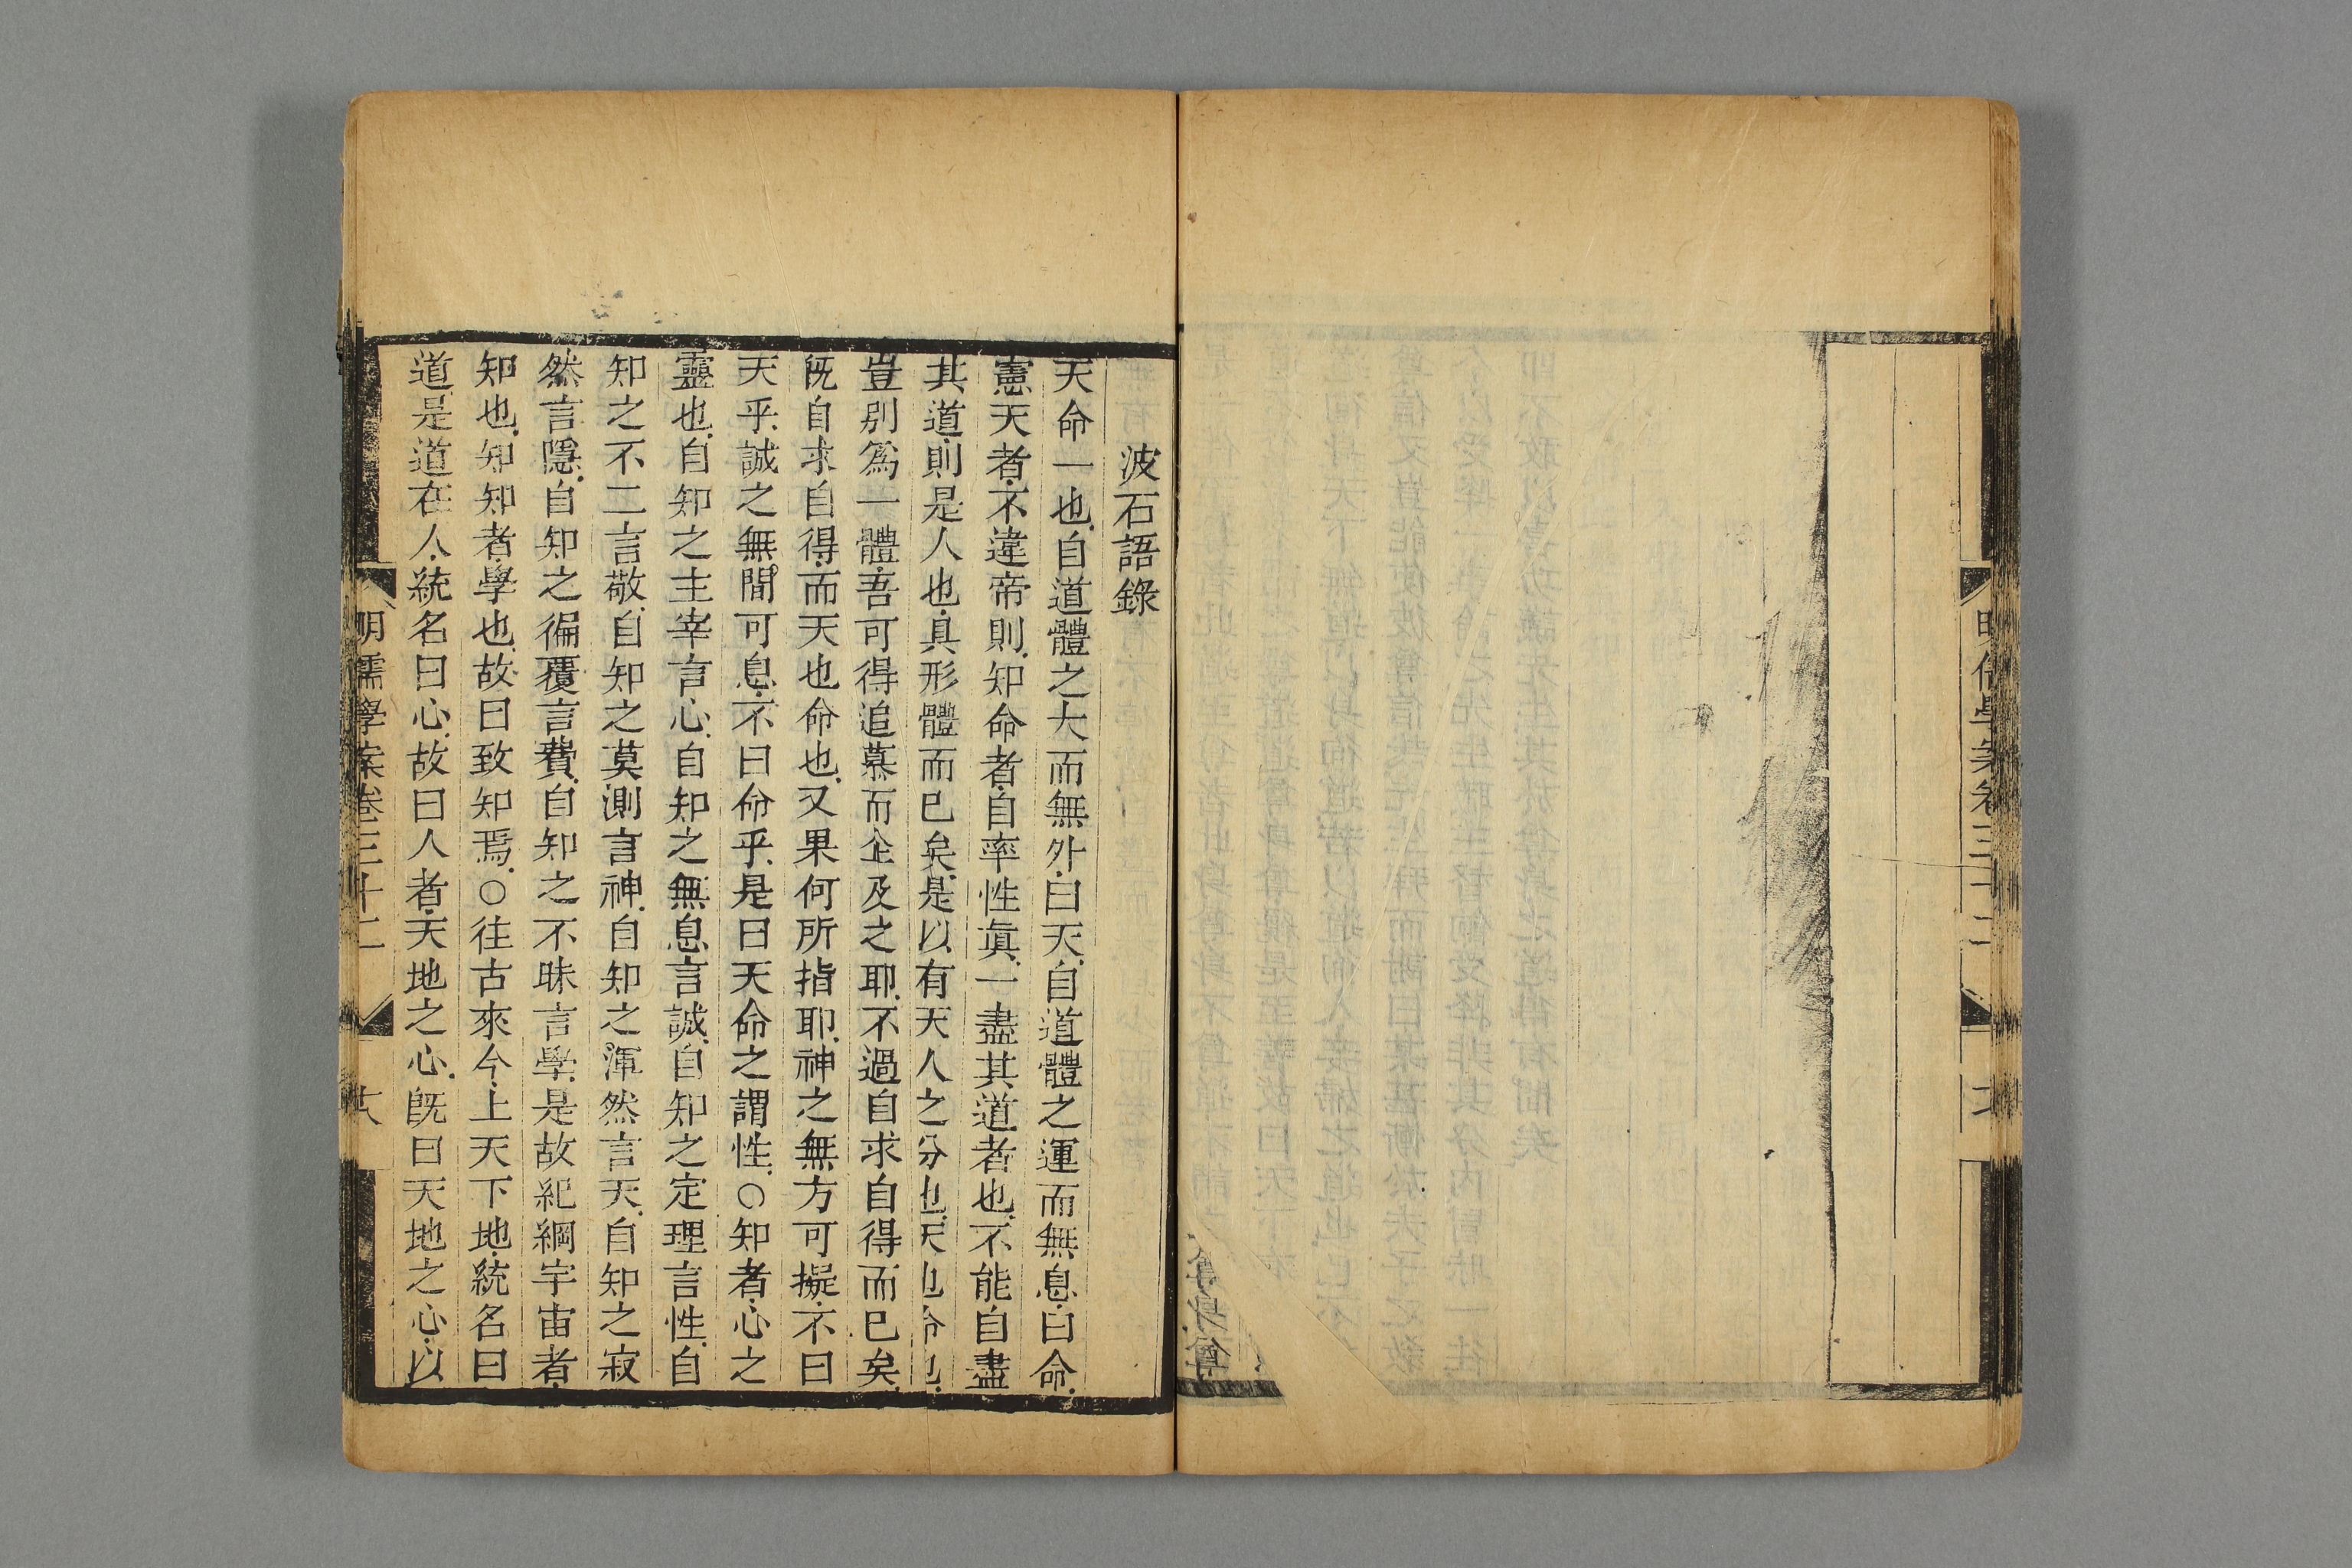 明儒學案卷三十二
波石語錄
天命一也自道體之大而無外曰天自道體之運而無息曰命
憲天者不違帝則知命者自率性真一盡其道者也不能自盡
其道則是人也具形體而已矣是以有天人之分也天也命也
豈別爲一體吾可得追慕而企及之耶不過自求自得而已矣
旣自求自得而天也命也又果何所指耶神之無方可擬不曰
天乎誠之無間可息不曰命乎是曰天命之謂性○知者心之
靈也自知之主宰言心自知之無息言誠自知之定理言性自
知之不二言敬自知之莫測言神自知之渾然言天自知之寂
然言隱自知之徧覆言費自知之不昧言學是故紀綱宇宙者
知也知知者學也故曰致知焉○往古來今上天下地統名曰
道是道在人統名曰心故曰人者天地之心旣曰天地之心以
明儒學案卷三十二 十八